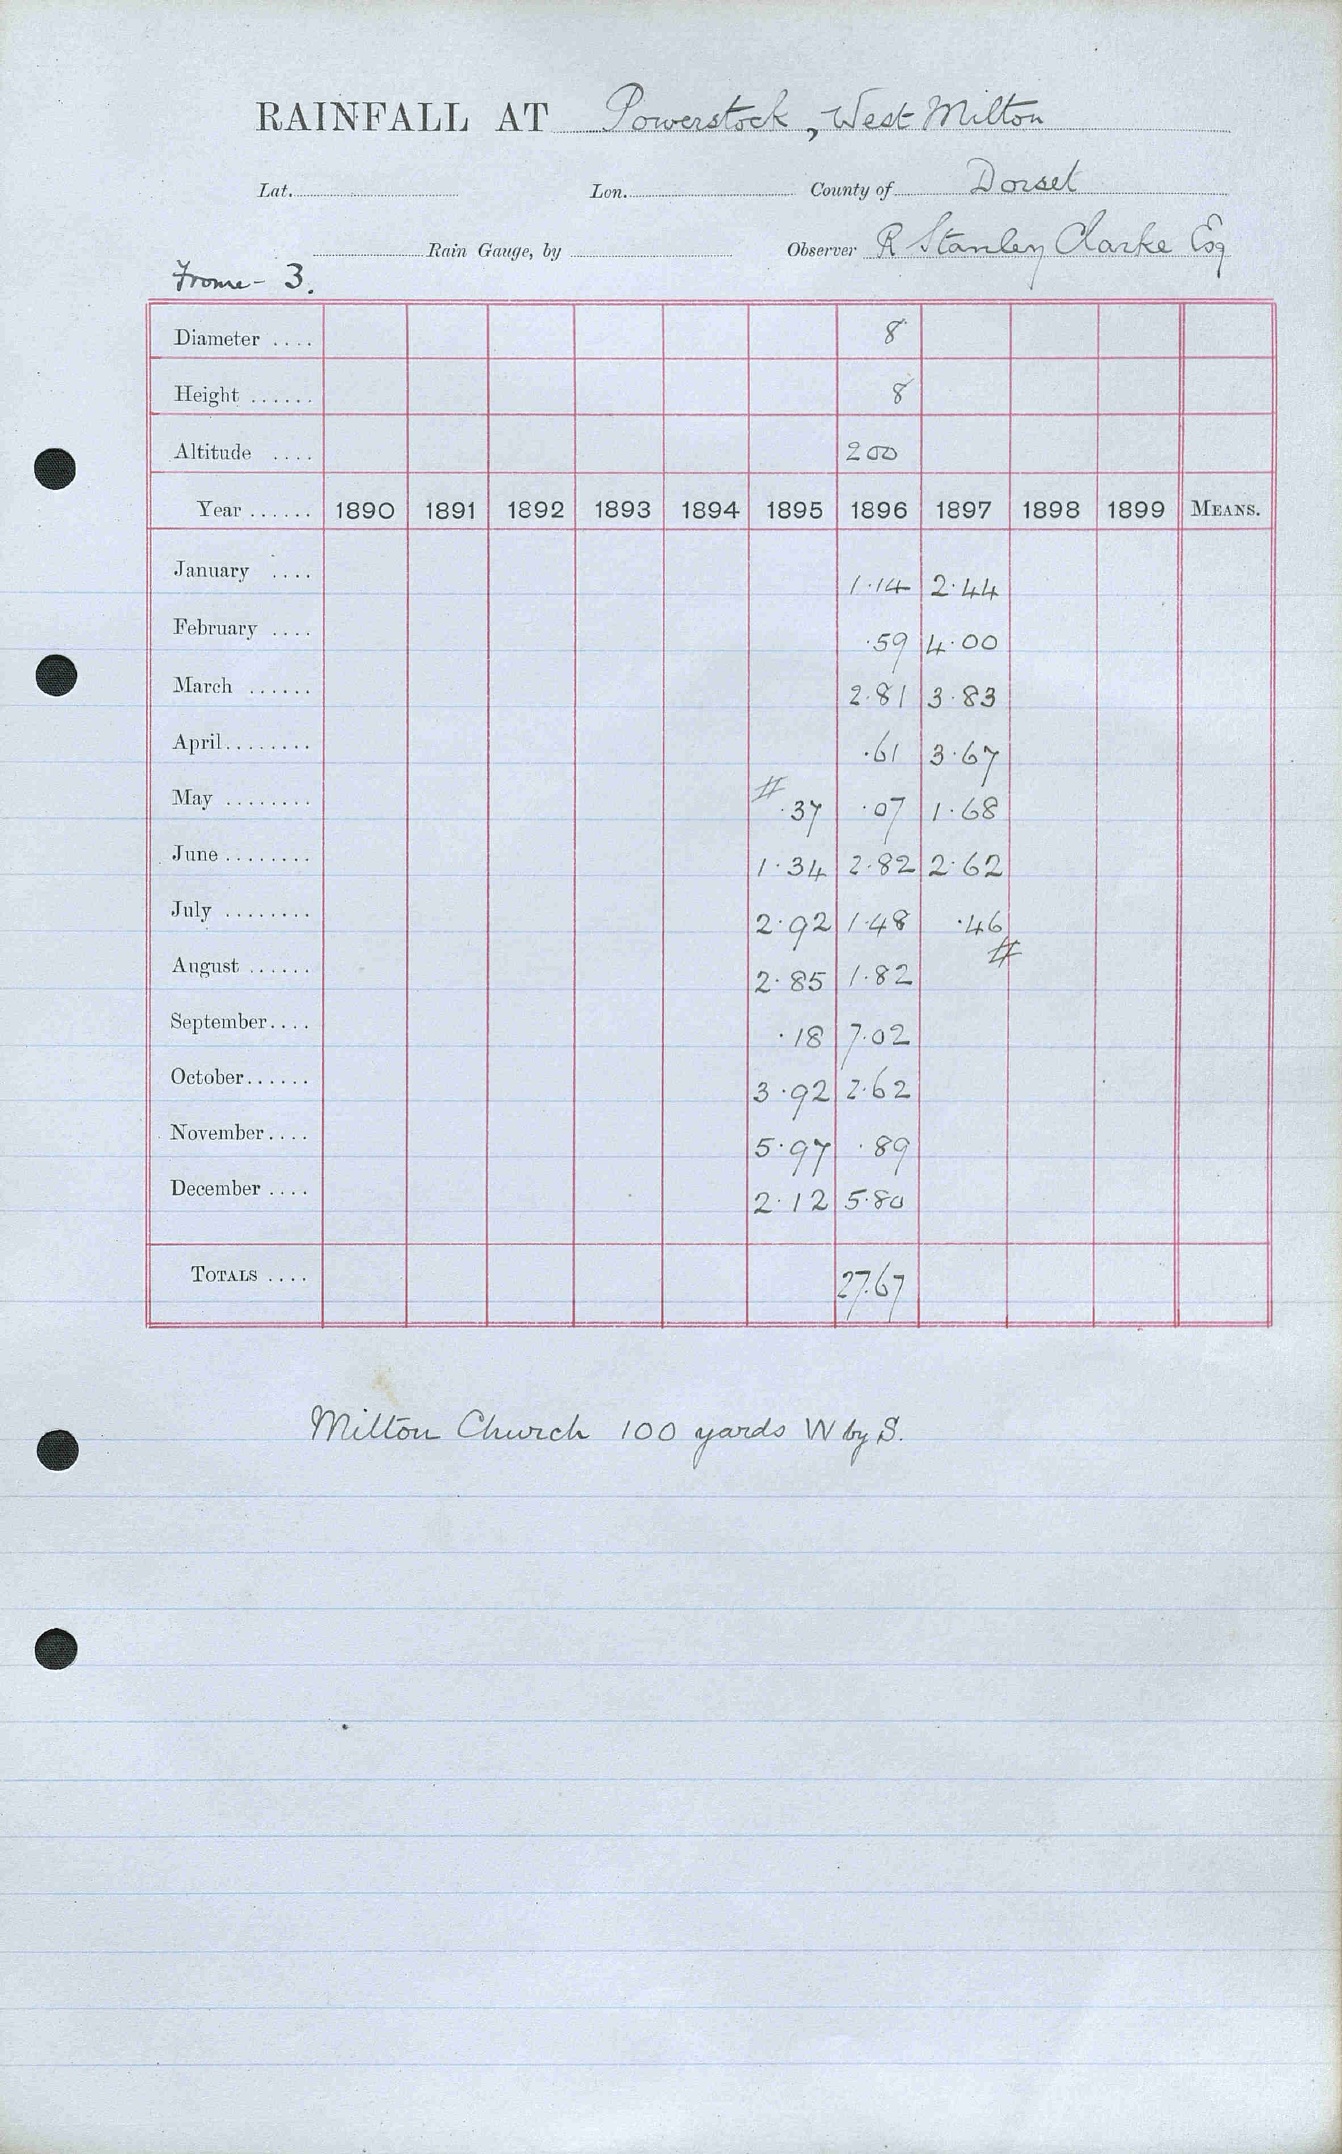 RAINFALL AT Powerstock, West Milton
Lat. Lon. County of Dorset
Rain Gauge, by Observer R Stanley Clarke Esq
Frome - 3.
Diameter .... 8
Height ...... 8
Altitude .... 200
Year ...... 1890 1891 1892 1893 1894 1895 1896 1897 1898 1899 MEANS.
January .... 1.14 2.44
February .... .59 4.00
March ...... 2.81 3.83
April........ .61 3.67
May ........ # .37 .07 1.68
June ........ 1.34 2.82 2.62
July ........ 2.92 1.48 .46 #
August ...... 2.85 1.82
September.... .18 7.02
October...... 3.92 2.62
November.... 5.97 .89
December .... 2.12 5.80
TOTALS .... 27.67
Milton Church 100 yards W by S.